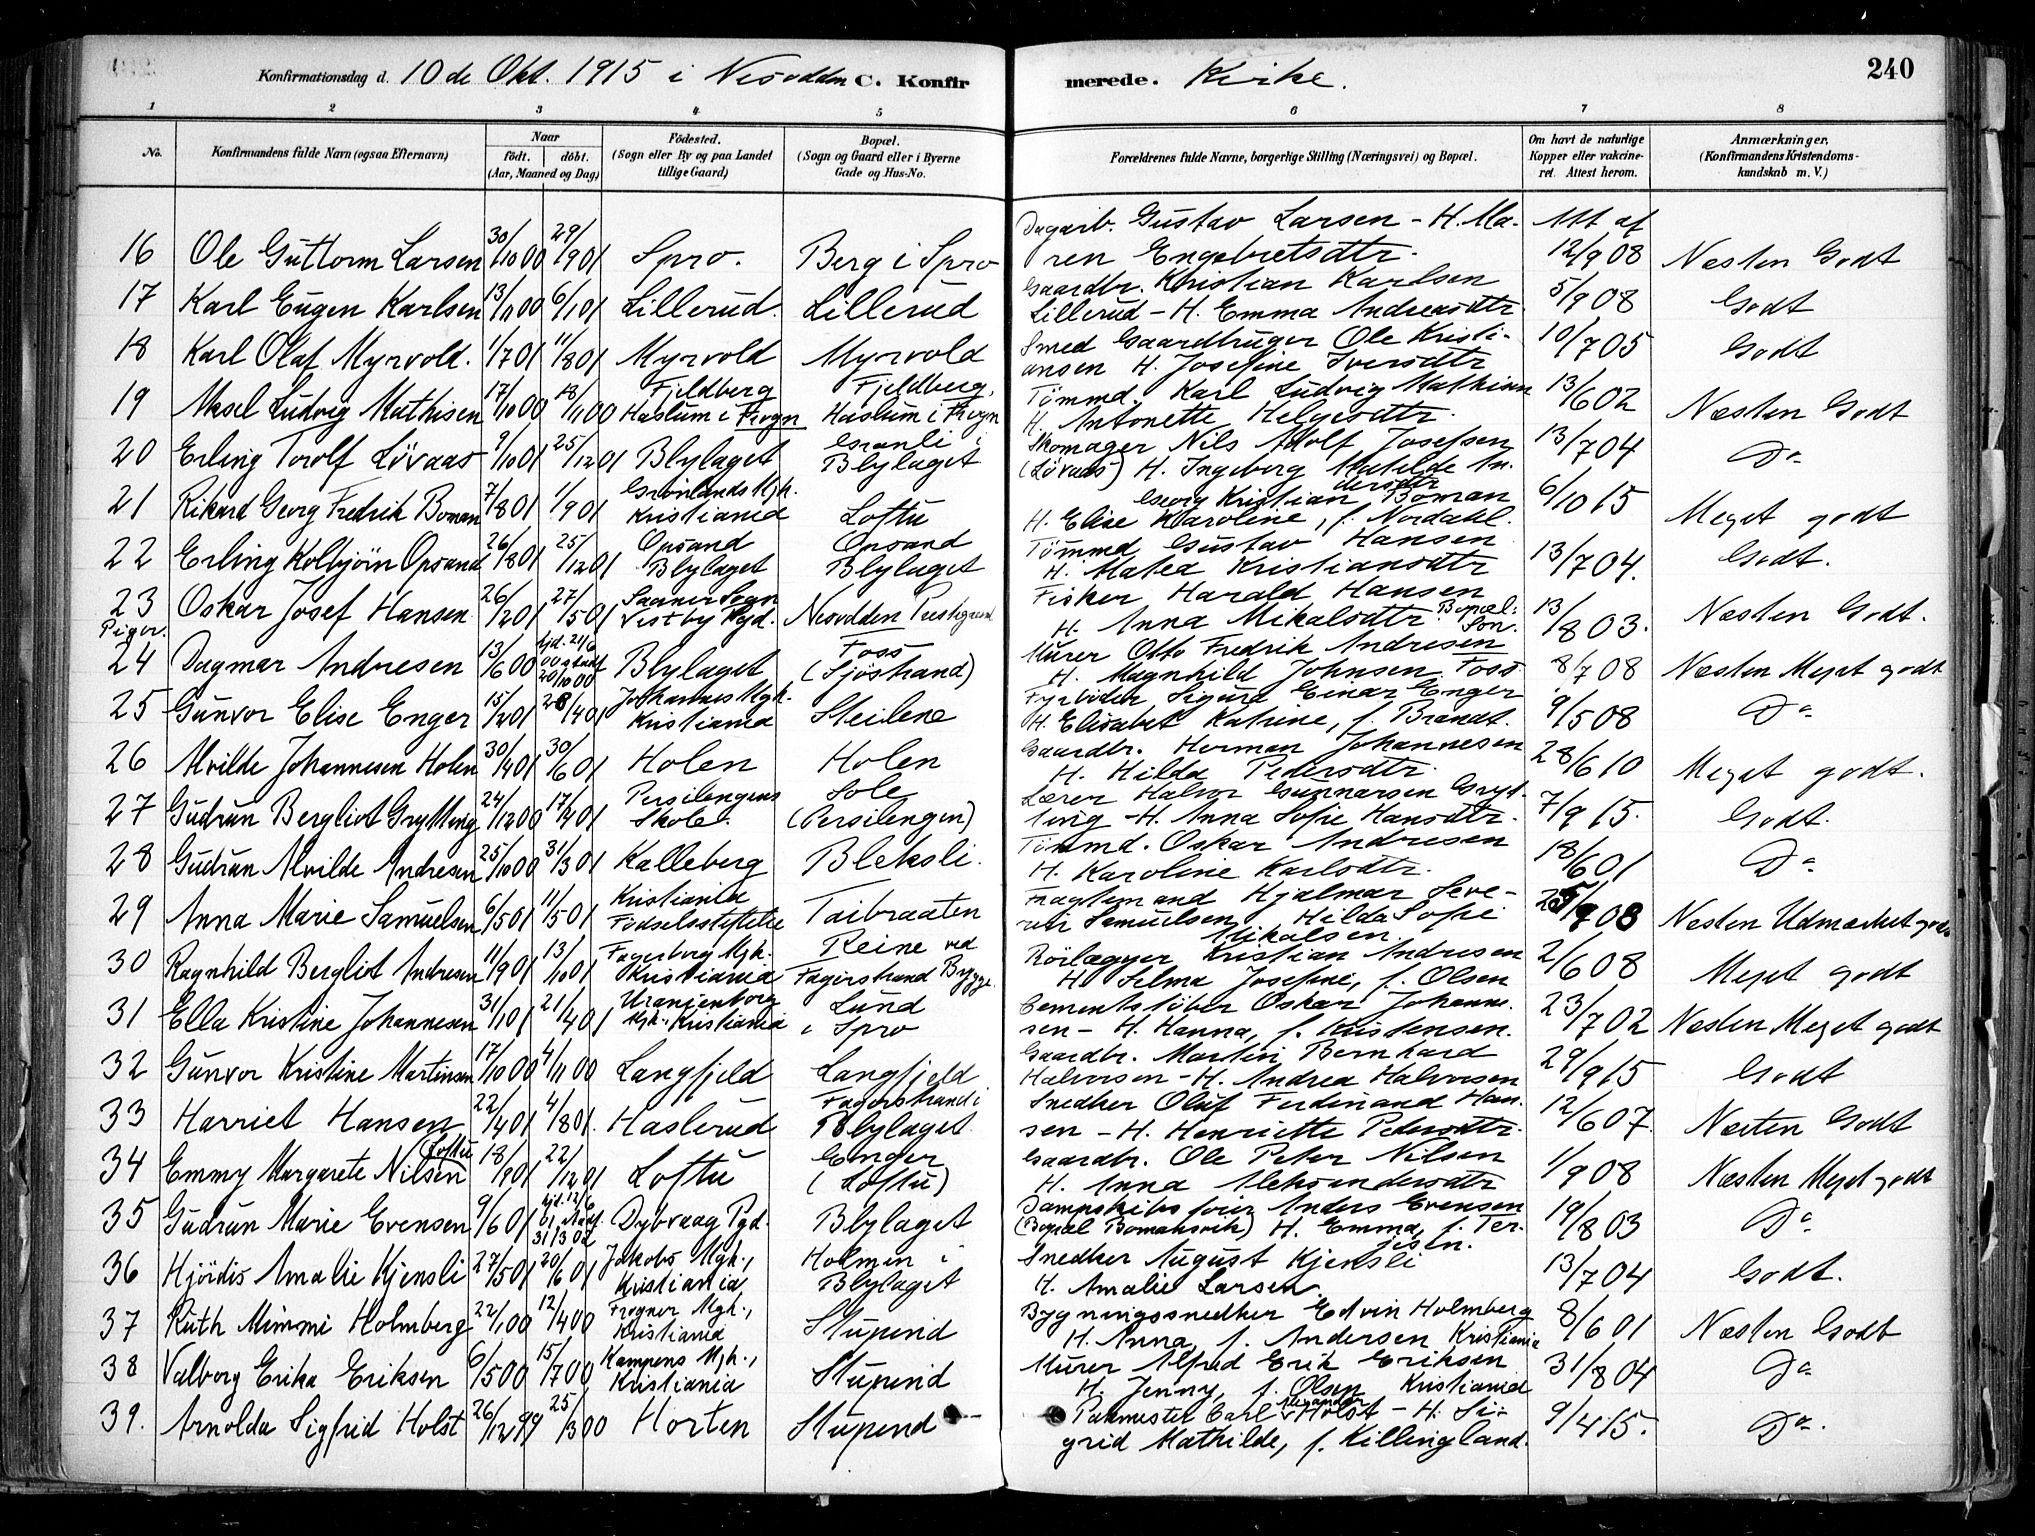 Konfirmationsdag d. 10de Okt. 1915 i Nesodden C. Konfirmerede. Kirke. 240
1 2 3 4 5 6 7 8
No. Konfirmandens fulde Navn (ogsaa Efternavn) Naar født. døbt. (Aar, Maaned og Dag) Fødested. (Sogn eller By og paa Landet tillige Gaard) Bopæl. (Sogn og Gaard eller i Byerne Gade og Hus-No. Forældrenes fulde Navne, borgerlige Stilling (Næringsvei) og Bopæl. Om havt de naturlige Kopper eller vakcineret. Attest herom. Anmærkninger. (Konfirmandens Kristendomskundskab m. V.)
16 Ole Guttorm Larsen 30/10 00 29/9 01 Spro. Berg i Spro Dagarb. Gustav Larsen - H. Maren Engebretsdtr. Att af 12/9 08 Næsten Godt
17 Karl Eugen Karlsen 13/11 00 6/1 01 Lillerud. Lillerud Gaardbr. Kristian Karlsen Lillerud - H. Emma Andreasdtr. 5/9 08 Godt
18 Karl Olaf Myrvold. 1/7 01 11/8 01 Myrvold Myrvold Smed Gaardbruger Ole Kristiansen H. Josefine Iversdtr 10/7 05 Godt
19 Aksel Ludvig Mathisen 17/10 00 18/11 00 Fjeldberg Haslum i Frogn Fjeldberg, Haslum i Frogn Tømmd. Karl Ludvig Mathisen H. Antonette Helgesdtr. 13/6 02 Næsten Godt
20 Erling Torolf Løvaas 9/10 01 25/12 01 Blylaget Granli i Blylaget Skomager Nils Adolf Josefsen (Løvaas) H. Ingeborg Matilde Andersdtr 13/7 04 Do
21 Rikard Georg Fredrik Boman 7/8 01 1/9 01 Grønlands Mgh. Kristiania Loftu Georg Kristian Boman H. Elise Karoline, f. Nordahl. 6/10 15 Meget godt
22 Erling Kolbjørn Opsand 26/8 01 25/12 01 Opsand Blylaget Opsand Blylaget Tømmd Gustav Hansen H. Matea Kristiansdtr 13/7 04. Godt.
23 Oskar Josef Hansen 26/2 01 27/5 01 Saaner Sogn Vestby Pgd. Nesodden Prestegaard Fisker Harald Hansen H. Anna Mikalsdtr. Bopæl: Son. 13/8 03. Næsten Godt.
Piger.
24 Dagmar Andresen 13/6 00 hjd. 21/6 00 stadf 20/10 00 Blylaget Foss (Sjøstrand) Murer Otto Fredrik Andresen H. Magnhild Johnsen Foss 8/7 08 Næsten Meget godt
25 Gunvor Elise Enger 15/2 01 28/4 01 Johannes Mgh. Kristiania Steilene Fyrbøder Sigurd Einar Enger H. Elisabet Katrine, f. Brandt. 9/5 08 Do
26 Alvilde Johannesen Holen 30/4 01 30/6 01 Holen Holen Gaardbr. Herman Johannesen H. Hilda Pedersdtr. 28/6 10 Meget godt.
27 Gudrun Bergliot Grytting 24/12 00 17/4 01 Persilengens Skole. Sole (Persilengen) Lærer Halvor Gunnarsen Grytting - H. Anna Sofie Hansdtr. 7/9 15. Godt.
28 Gudrun Alvilde Andresen 25/10 00 31/3 01 Kalleberg Bleksli. Tømmd. Oskar Andresen H. Karoline Karlsdtr. 18/6 01 Do
29 Anna Marie Samuelsen 6/5 01 11/5 01 Kristiania Fødselsstiftelse Taibraaten Fragtemand Hjalmar Severin Samuelsen Hilda Sofie Mikalsen. Næsten Udmærket godt
30 Ragnhild Bergliot Andresen 11/9 01 13/10 01 Fagerborg Mgh. Kristiania Reine ved Fagerstrand Brygge. Rørlægger Kristian Andresen H. Selma Josefine, f. Olsen 2/6 08 Meget godt
31 Ella Kristine Johannesen 31/1 01 21/4 01 Uranienborg Mgh. Kristiania Lund i Spro Cementstøber Oskar Johannesen - H. Hanna, f. Kristensen. 23/7 02 Næsten Meget godt
32 Gunvor Kristine Martinsen 17/10 00 4/11 00 Langfjeld Langfjeld Gaardbr. Martin Bernhard Halvorsen - H. Andrea Halvorsen 29/9 15 Godt
33 Harriet Hansen 22/4 01 4/8 01. Haslerud Fagerstrand i Blylaget. Snedker Oluf Ferdinand Hansen - H. Henriette Pedersdtr. 12/6 07. Næsten Godt
34 Emmy Margarete Nilsen (Loftu 18/9 01 22/12 01 Loftu Enger (Loftu) Gaardbr. Ole Peter Nilsen H. Anna Aleksandersdtr 1/9 08 Næsten Meget godt
35 Gudrun Marie Evensen 9/6 01 hjd. 12/6 01 stadf. 31/3 02 Dybvaag Pgd. Blylaget Dampskibsfører Anders Evensen (Bopæl Bomansvik) H. Emma, f. Terjesen. 19/8 03 Do
36 Hjørdis Amalie Kjensli 27/5 01 20/6 01 Jakobs Mgh., Kristiania Holmen i Blylaget Snedker August Kjensli H. Amalie Larsen 13/7 04 Godt.
37 Ruth Mimmi Holmberg 22/1 00 12/4 00 Frogner Mgh., Kristiania Stupend Bygningssnedker Edvin Holmberg H. Anna, f. Andersen Kristiania 8/6 01 Næsten Godt
38 Valborg Erika Eriksen 6/5 00 15/7 00 Kampens Mgh., Kristiania Stupend Murer Alfred Erik Eriksen H. Jenny, f. Olsen Kristiania 31/8 04 Do
39. Arnolda Sigfrid Holst 26/12 99 25/3 00 Horten Stupend Pakmester Carl Alexander Holst - H. Sigrid Mathilde, f. Killingland. 9/4 15. Do.